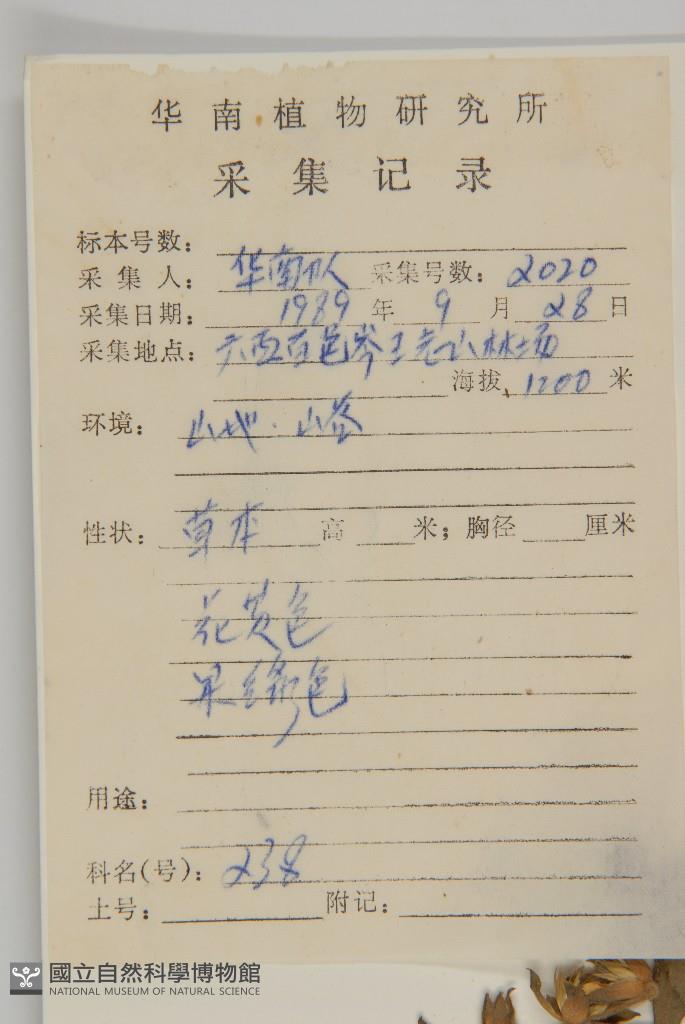 华南植物研究所
采集记录
标本号数：
采集人：华南队 采集号数：2020
采集日期：1989年9月28日
采集地点：广西百色岑王老山林场
海拔 1200 米
环境：山地·山谷
性状：草本 高 米；胸径 厘米
花黄色
果绿色
用途：
科名(号)：238
土号： 附记：
國立自然科學博物館
NATIONAL MUSEUM OF NATURAL SCIENCE